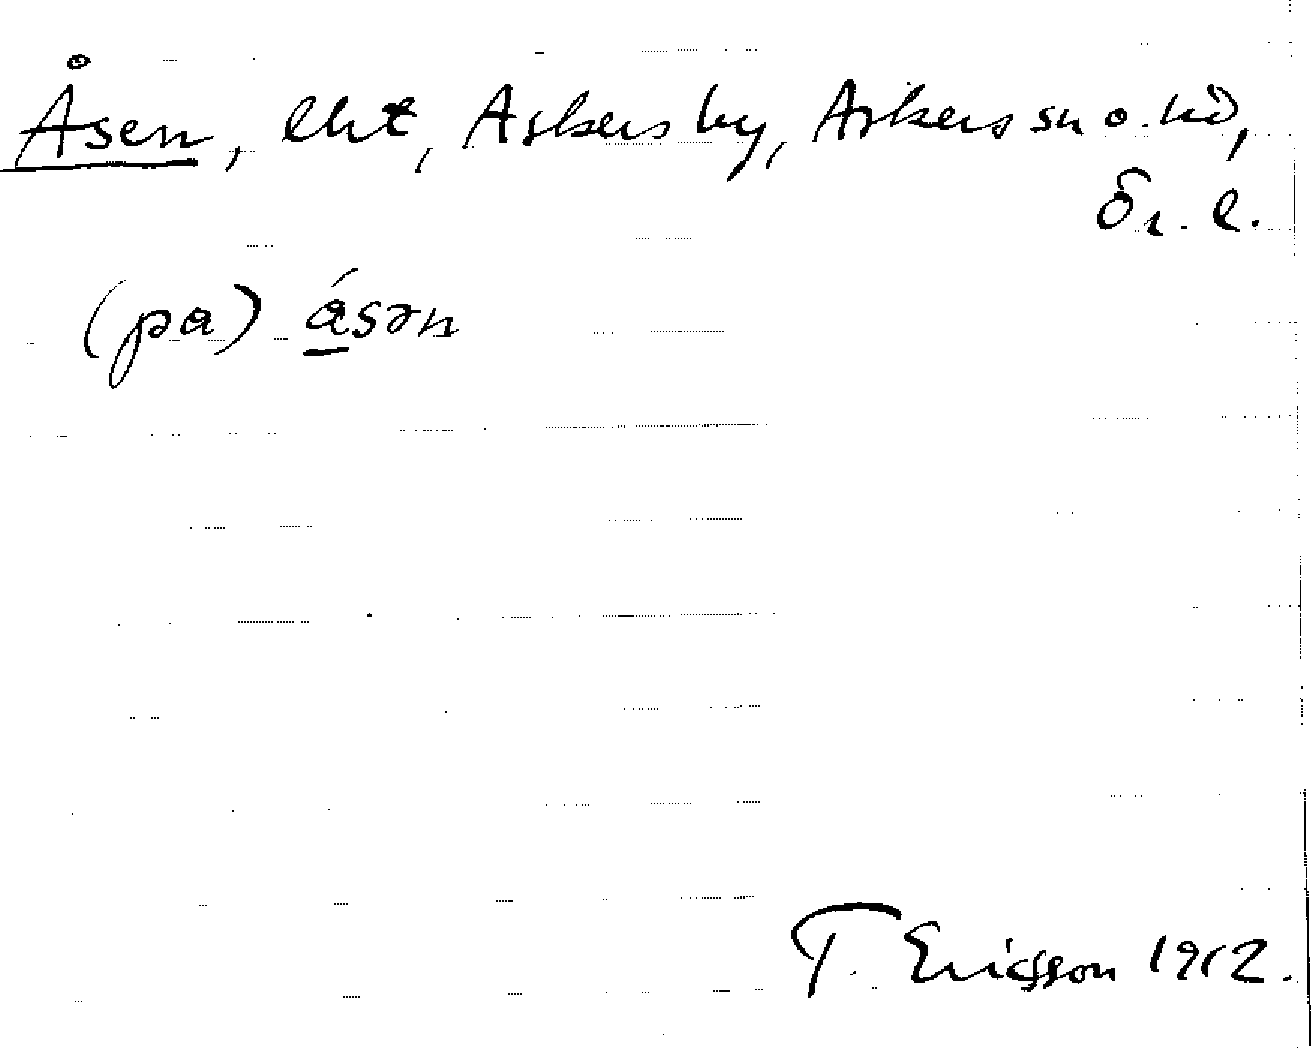 Åsen, lht, Askersby, Askers sn o. hd,
Ör. l.
(pa) ásən
T. Ericsson 1912.